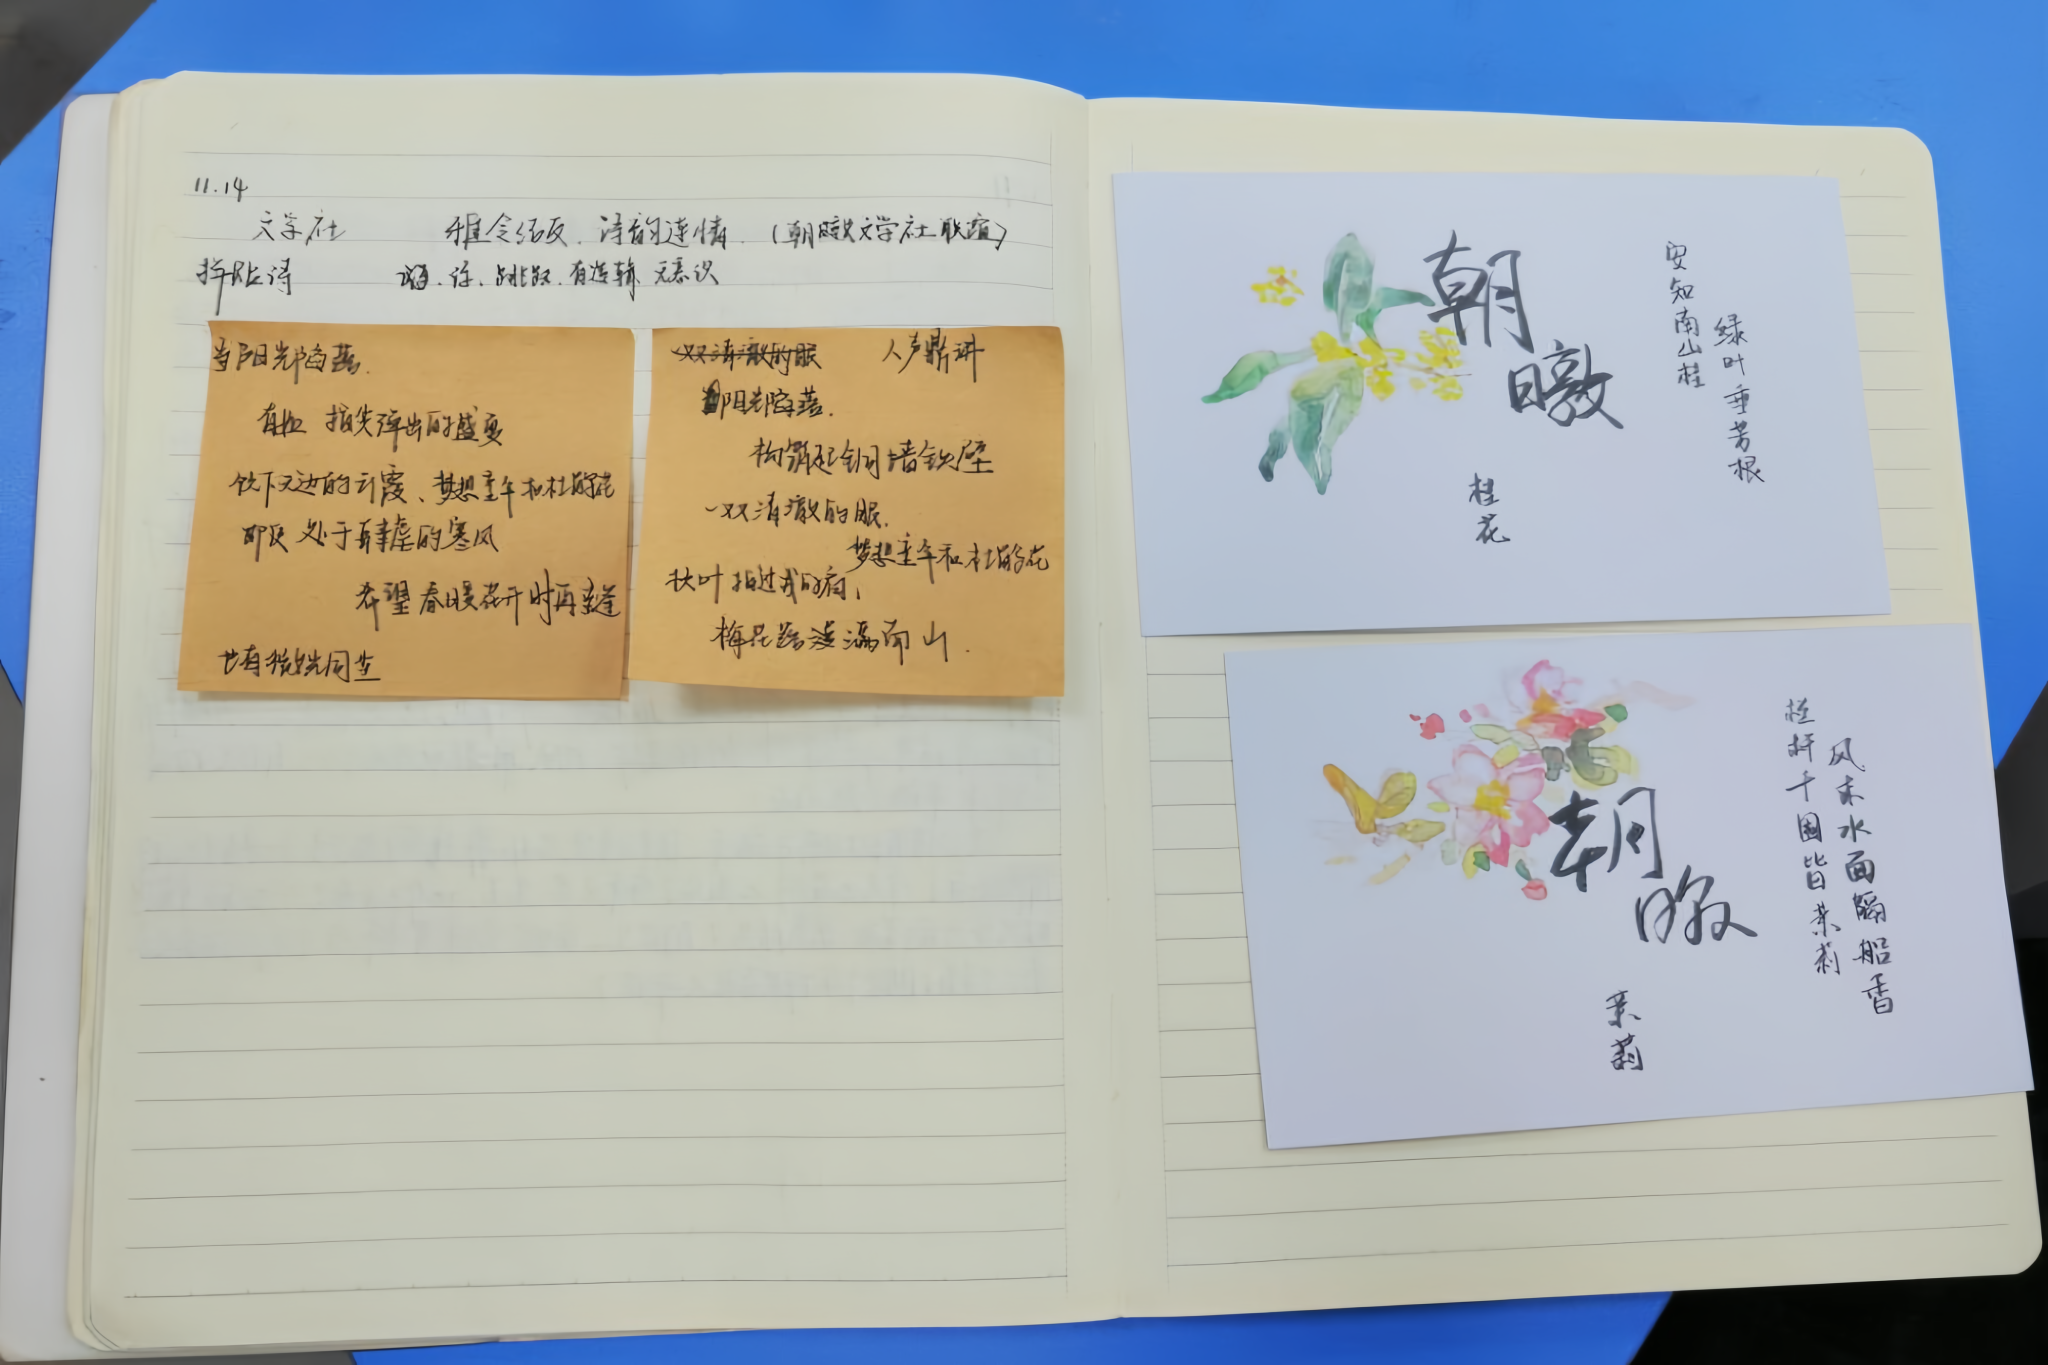 11.14
文学社 雅令结友．诗韵连情．（朝暾文学社联谊）
拼贴诗 跳跃．有逻辑 无意识
当阳光陷落．
指尖弹出的盛夏
饮下无边的云霞、梦想童年和杜鹃花
即便处于肆虐的寒风
希望春暖花开时再重逢
也有微光同尘
一双清澈的眼 人声鼎沸
当阳光陷落．
构筑起铜墙铁壁
一双清澈的眼．
梦想童年和杜鹃花
秋叶拍过我的肩，
梅花落凌满南山．
朝
暾
安知南山桂
绿叶垂芳根
桂花
朝
暾
栏杆千围皆茉莉
风来水面隔船香
茉莉